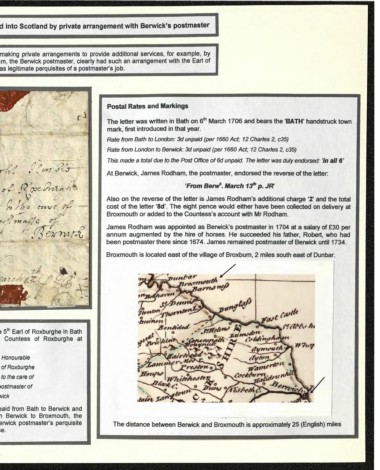 d into Scotland by private arrangement with Berwick's postmaster
making private arrangements to provide additional services, for example, by
m, the Berwick postmaster, clearly had such an arrangement with the Earl of
as legitimate perquisites of a postmaster's job.
Postal Rates and Markings
The letter was written in Bath on 6th March 1706 and bears the 'BATH' handstruck town
mark, first introduced in that year.
Rate from Bath to London: 3d unpaid (per 1660 Act; 12 Charles 2, c35)
Rate from London to Berwick: 3d unpaid (per 1660 Act; 12 Charles 2, c35)
This made a total due to the Post Office of 6d unpaid. The letter was duly endorsed: 'In all 6'
At Berwick, James Rodham, the postmaster, endorsed the reverse of the letter:
'From Berwk. March 13th p. JR'
Also on the reverse of the letter is James Rodham's additional charge '2' and the total
cost of the letter '8d'. The eight pence would either have been collected on delivery at
Broxmouth or added to the Countess's account with Mr Rodham.
James Rodham was appointed as Berwick's postmaster in 1704 at a salary of £30 per
annum augmented by the hire of horses. He succeeded his father, Robert, who had
been postmaster there since 1674. James remained postmaster of Berwick until 1734.
Broxmouth is located east of the village of Broxburn, 2 miles south east of Dunbar.
of Roxburghe
to the care of
Berwick
Dunbar
Broxmouth
Barnsness
Dunglass
Coldingham
Eymouth
Ayton
Preston
Berwick
5th Earl of Roxburghe in Bath
Countess of Roxburghe at
Honourable
of Roxburghe
to the care of
postmaster of
wick
paid from Bath to Berwick and
n Berwick to Broxmouth, the
Berwick postmaster's perquisite
e.
The distance between Berwick and Broxmouth is approximately 25 (English) miles